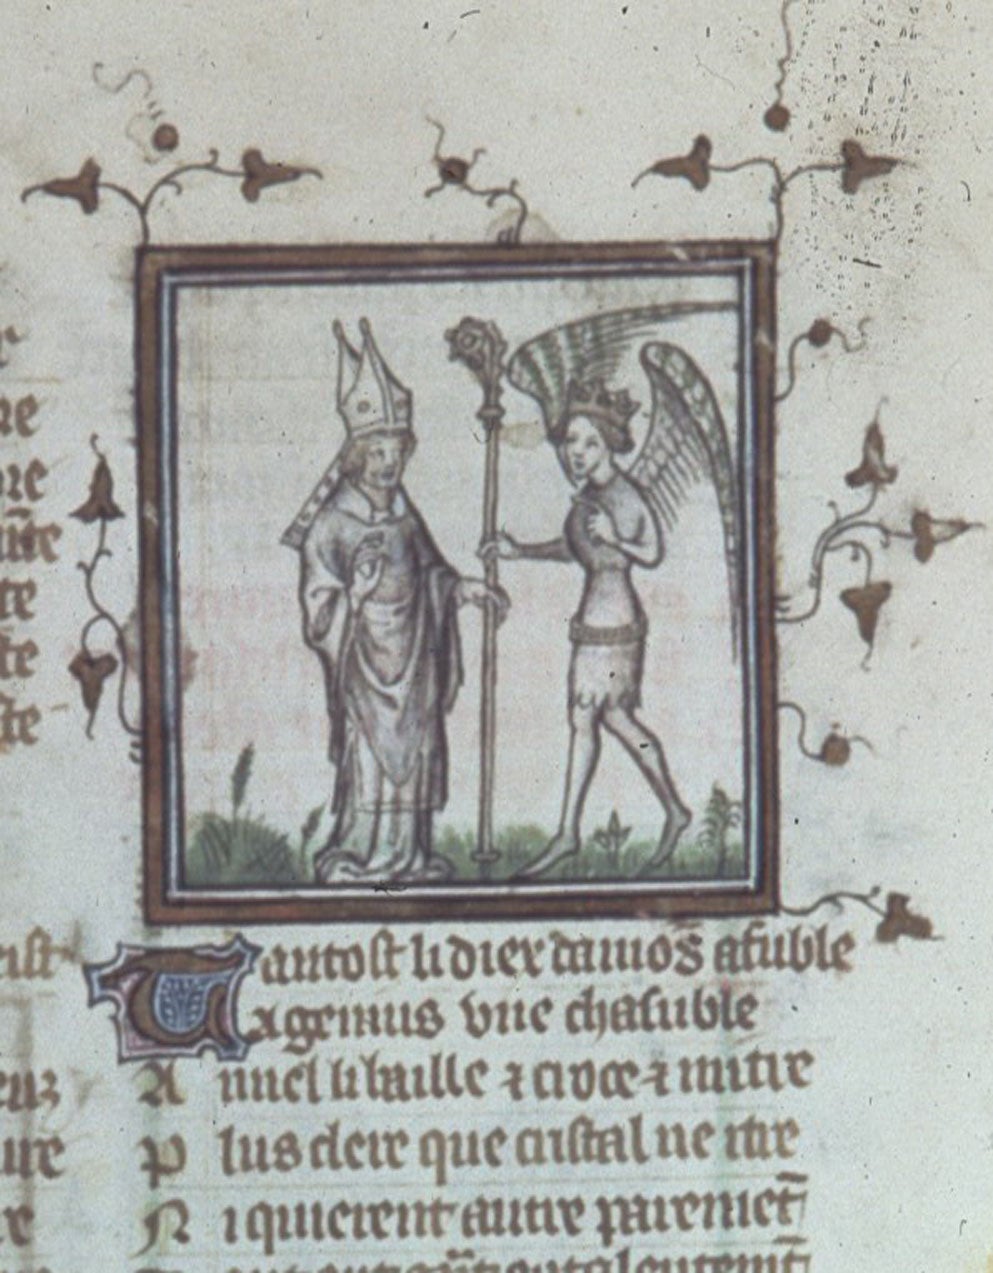 re
ore
te
ste
ste
Tantost li diex damo᷒s afuble
A genius vne chasuble
Annel li baille ⁊ croce ⁊ mitre
Plus clere que cristal ne vitre
Ni quierent autre paremēt